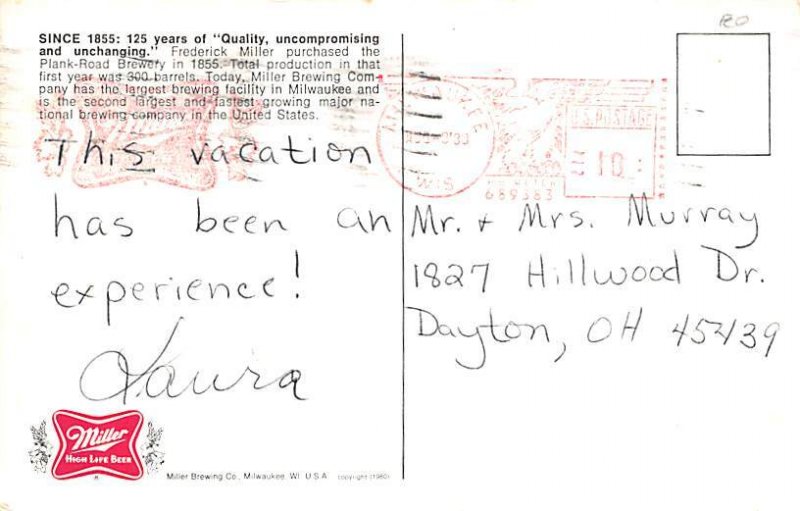 80
SINCE 1855: 125 years of "Quality, uncompromising
and unchanging." Frederick Miller purchased the
Plank-Road Brewery in 1855. Total production in that
first year was 300 barrels. Today, Miller Brewing Com-
pany has the largest brewing facility in Milwaukee and
is the second largest and fastest growing major na-
tional brewing company in the United States.
MILWAUKEE
WIS
U.S. POSTAGE
10
689383
This vacation
has been an
experience!
Laura
Mr. + Mrs. Murray
1827 Hillwood Dr.
Dayton, OH 45439
Miller
HIGH LIFE BEER
Miller Brewing Co., Milwaukee, WI U.S.A. copyright (1980)